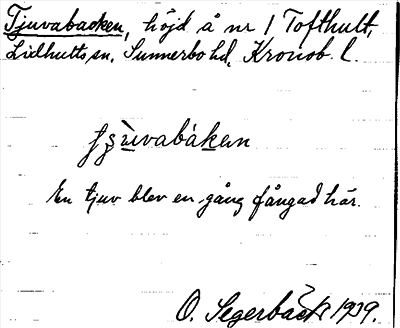 Tjuvabacken, höjd å nr 1 Tofthult,
Lidhults sn, Sunnerbo hd, Kronob. l.
En tjuv blev en gång fångad här.
O. Segerbäck 1939.